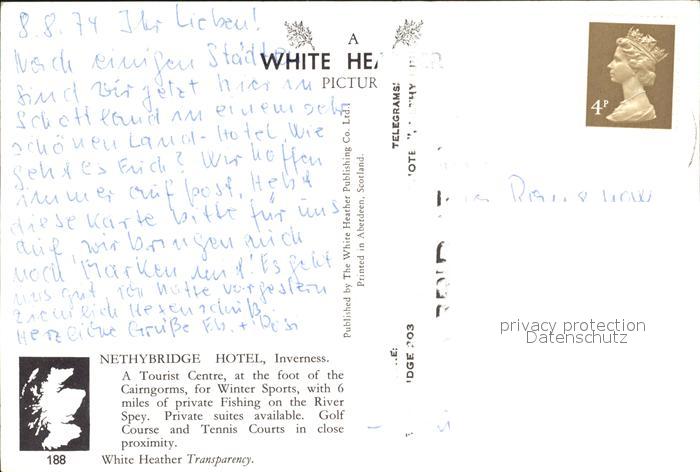 8.8.74 Ihr Lieben!
Nach einigen Städten
sind wir jetzt hier in
Schottland in einem sehr
schönen Land-Hotel. Wie
geht es Erich? Wir hoffen
immer auf post. Hebt
diese Karte bitte für uns
auf, wir bringen auch
noch Marken mit! Es geht
uns gut, ich hatte vorgestern
ziemlich Hexenschuß.
Herzliche Grüße
A
WHITE HEATHER
PICTUR
TELEGRAMS:
Published by The White Heather Publishing Co. Ltd.
Printed in Aberdeen, Scotland.
4P
IDGE 203
privacy protection
Datenschutz
NETHYBRIDGE HOTEL, Inverness.
A Tourist Centre, at the foot of the
Cairngorms, for Winter Sports, with 6
miles of private Fishing on the River
Spey. Private suites available. Golf
Course and Tennis Courts in close
proximity.
188 White Heather Transparency.